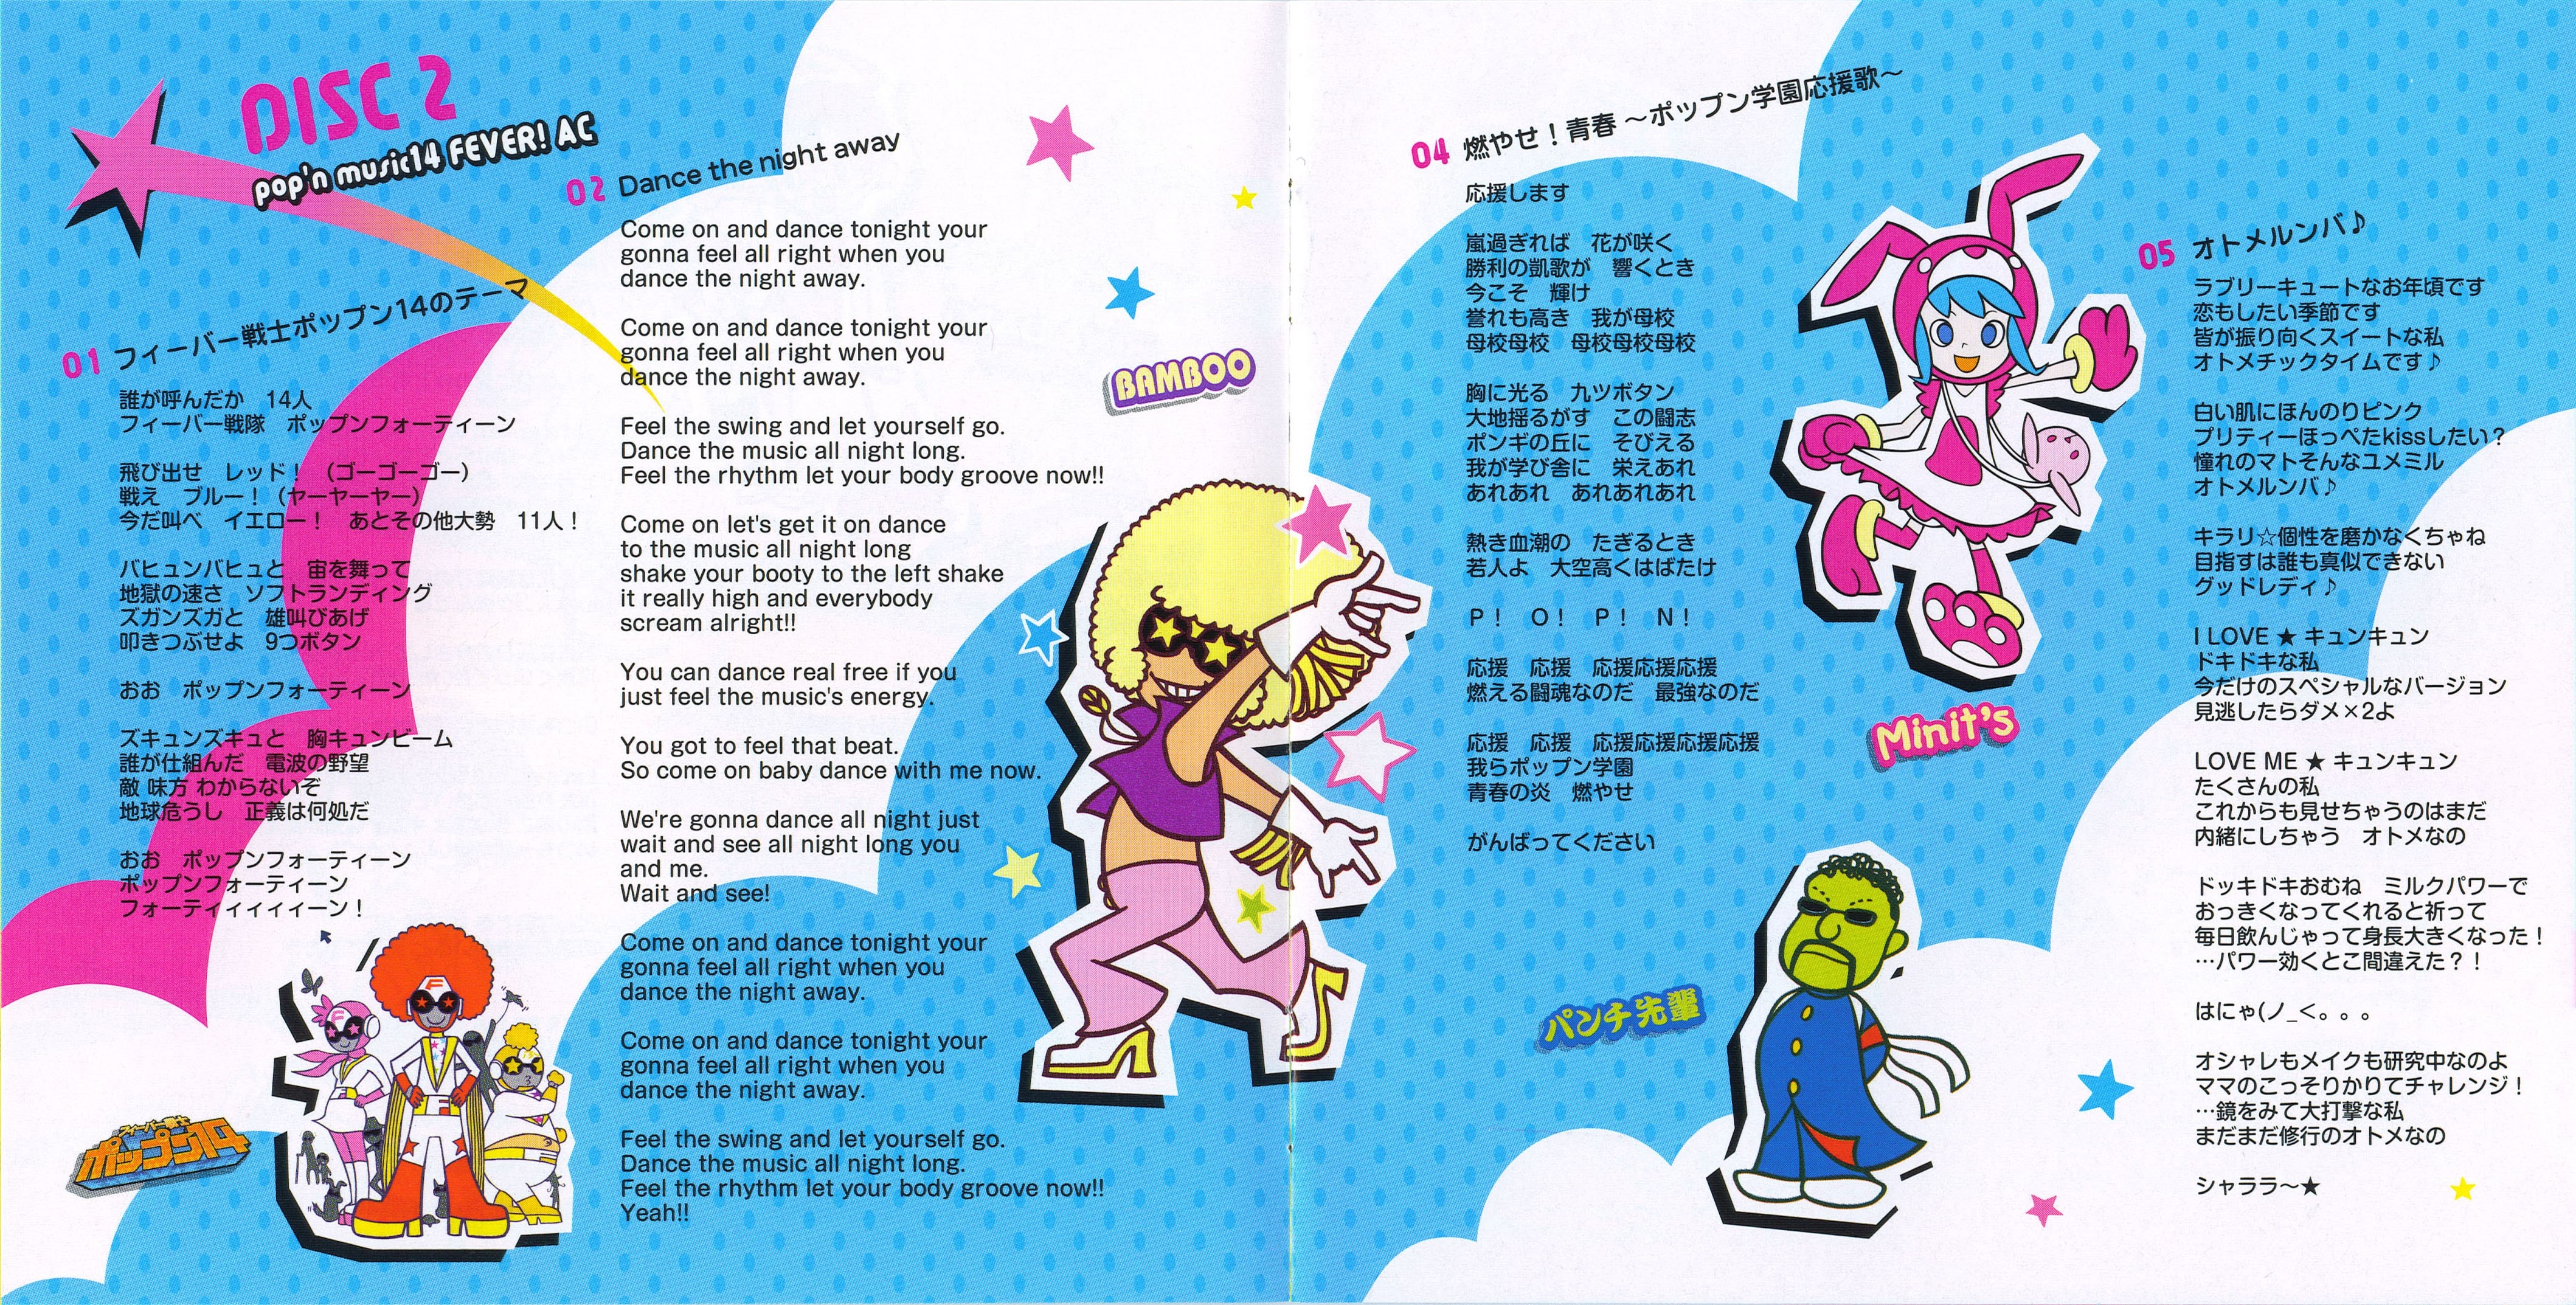 DISC 2
pop'n music14 FEVER! AC
01 フィーバー戦士ポップン14のテーマ
誰が呼んだか　14人
フィーバー戦隊　ポップンフォーティーン
飛び出せ　レッド！（ゴーゴーゴー）
戦え　ブルー！（ヤーヤーヤー）
今だ叫べ　イエロー！　あとその他大勢　11人！
バヒュンバヒュと　宙を舞って
地獄の速さ　ソフトランディング
ズガンズガと　雄叫びあげ
叩きつぶせよ　9つボタン
おお　ポップンフォーティーン
ズキュンズキュと　胸キュンビーム
誰が仕組んだ　電波の野望
敵 味方 わからないぞ
地球危うし　正義は何処だ
おお　ポップンフォーティーン
ポップンフォーティーン
フォーティィィィィーン！
フィーバー戦士
ポップン14
02 Dance the night away
Come on and dance tonight your
gonna feel all right when you
dance the night away.
Come on and dance tonight your
gonna feel all right when you
dance the night away.
Feel the swing and let yourself go.
Dance the music all night long.
Feel the rhythm let your body groove now!!
Come on let's get it on dance
to the music all night long
shake your booty to the left shake
it really high and everybody
scream alright!!
You can dance real free if you
just feel the music's energy.
You got to feel that beat.
So come on baby dance with me now.
We're gonna dance all night just
wait and see all night long you
and me.
Wait and see!
Come on and dance tonight your
gonna feel all right when you
dance the night away.
Come on and dance tonight your
gonna feel all right when you
dance the night away.
Feel the swing and let yourself go.
Dance the music all night long.
Feel the rhythm let your body groove now!!
Yeah!!
BAMBOO
04 燃やせ！青春 ～ポップン学園応援歌～
応援します
嵐過ぎれば　花が咲く
勝利の凱歌が　響くとき
今こそ　輝け
誉れも高き　我が母校
母校母校　母校母校母校
胸に光る　九ツボタン
大地揺るがす　この闘志
ポンギの丘に　そびえる
我が学び舎に　栄えあれ
あれあれ　あれあれあれ
熱き血潮の　たぎるとき
若人よ　大空高くはばたけ
P！　O！　P！　N！
応援　応援　応援応援応援
燃える闘魂なのだ　最強なのだ
応援　応援　応援応援応援応援
我らポップン学園
青春の炎　燃やせ
がんばってください
パンチ先輩
05 オトメルンバ♪
ラブリーキュートなお年頃です
恋もしたい季節です
皆が振り向くスイートな私
オトメチックタイムです♪
白い肌にほんのりピンク
プリティーほっぺたkissしたい？
憧れのマトそんなユメミル
オトメルンバ♪
キラリ☆個性を磨かなくちゃね
目指すは誰も真似できない
グッドレディ♪
I LOVE ★ キュンキュン
ドキドキな私
今だけのスペシャルなバージョン
見逃したらダメ×2よ
LOVE ME ★ キュンキュン
たくさんの私
これからも見せちゃうのはまだ
内緒にしちゃう　オトメなの
ドッキドキおむね　ミルクパワーで
おっきくなってくれると祈って
毎日飲んじゃって身長大きくなった！
…パワー効くとこ間違えた？！
はにゃ(ノ_<。。。
オシャレもメイクも研究中なのよ
ママのこっそりかりてチャレンジ！
…鏡をみて大打撃な私
まだまだ修行のオトメなの
シャララ～★
Minit's